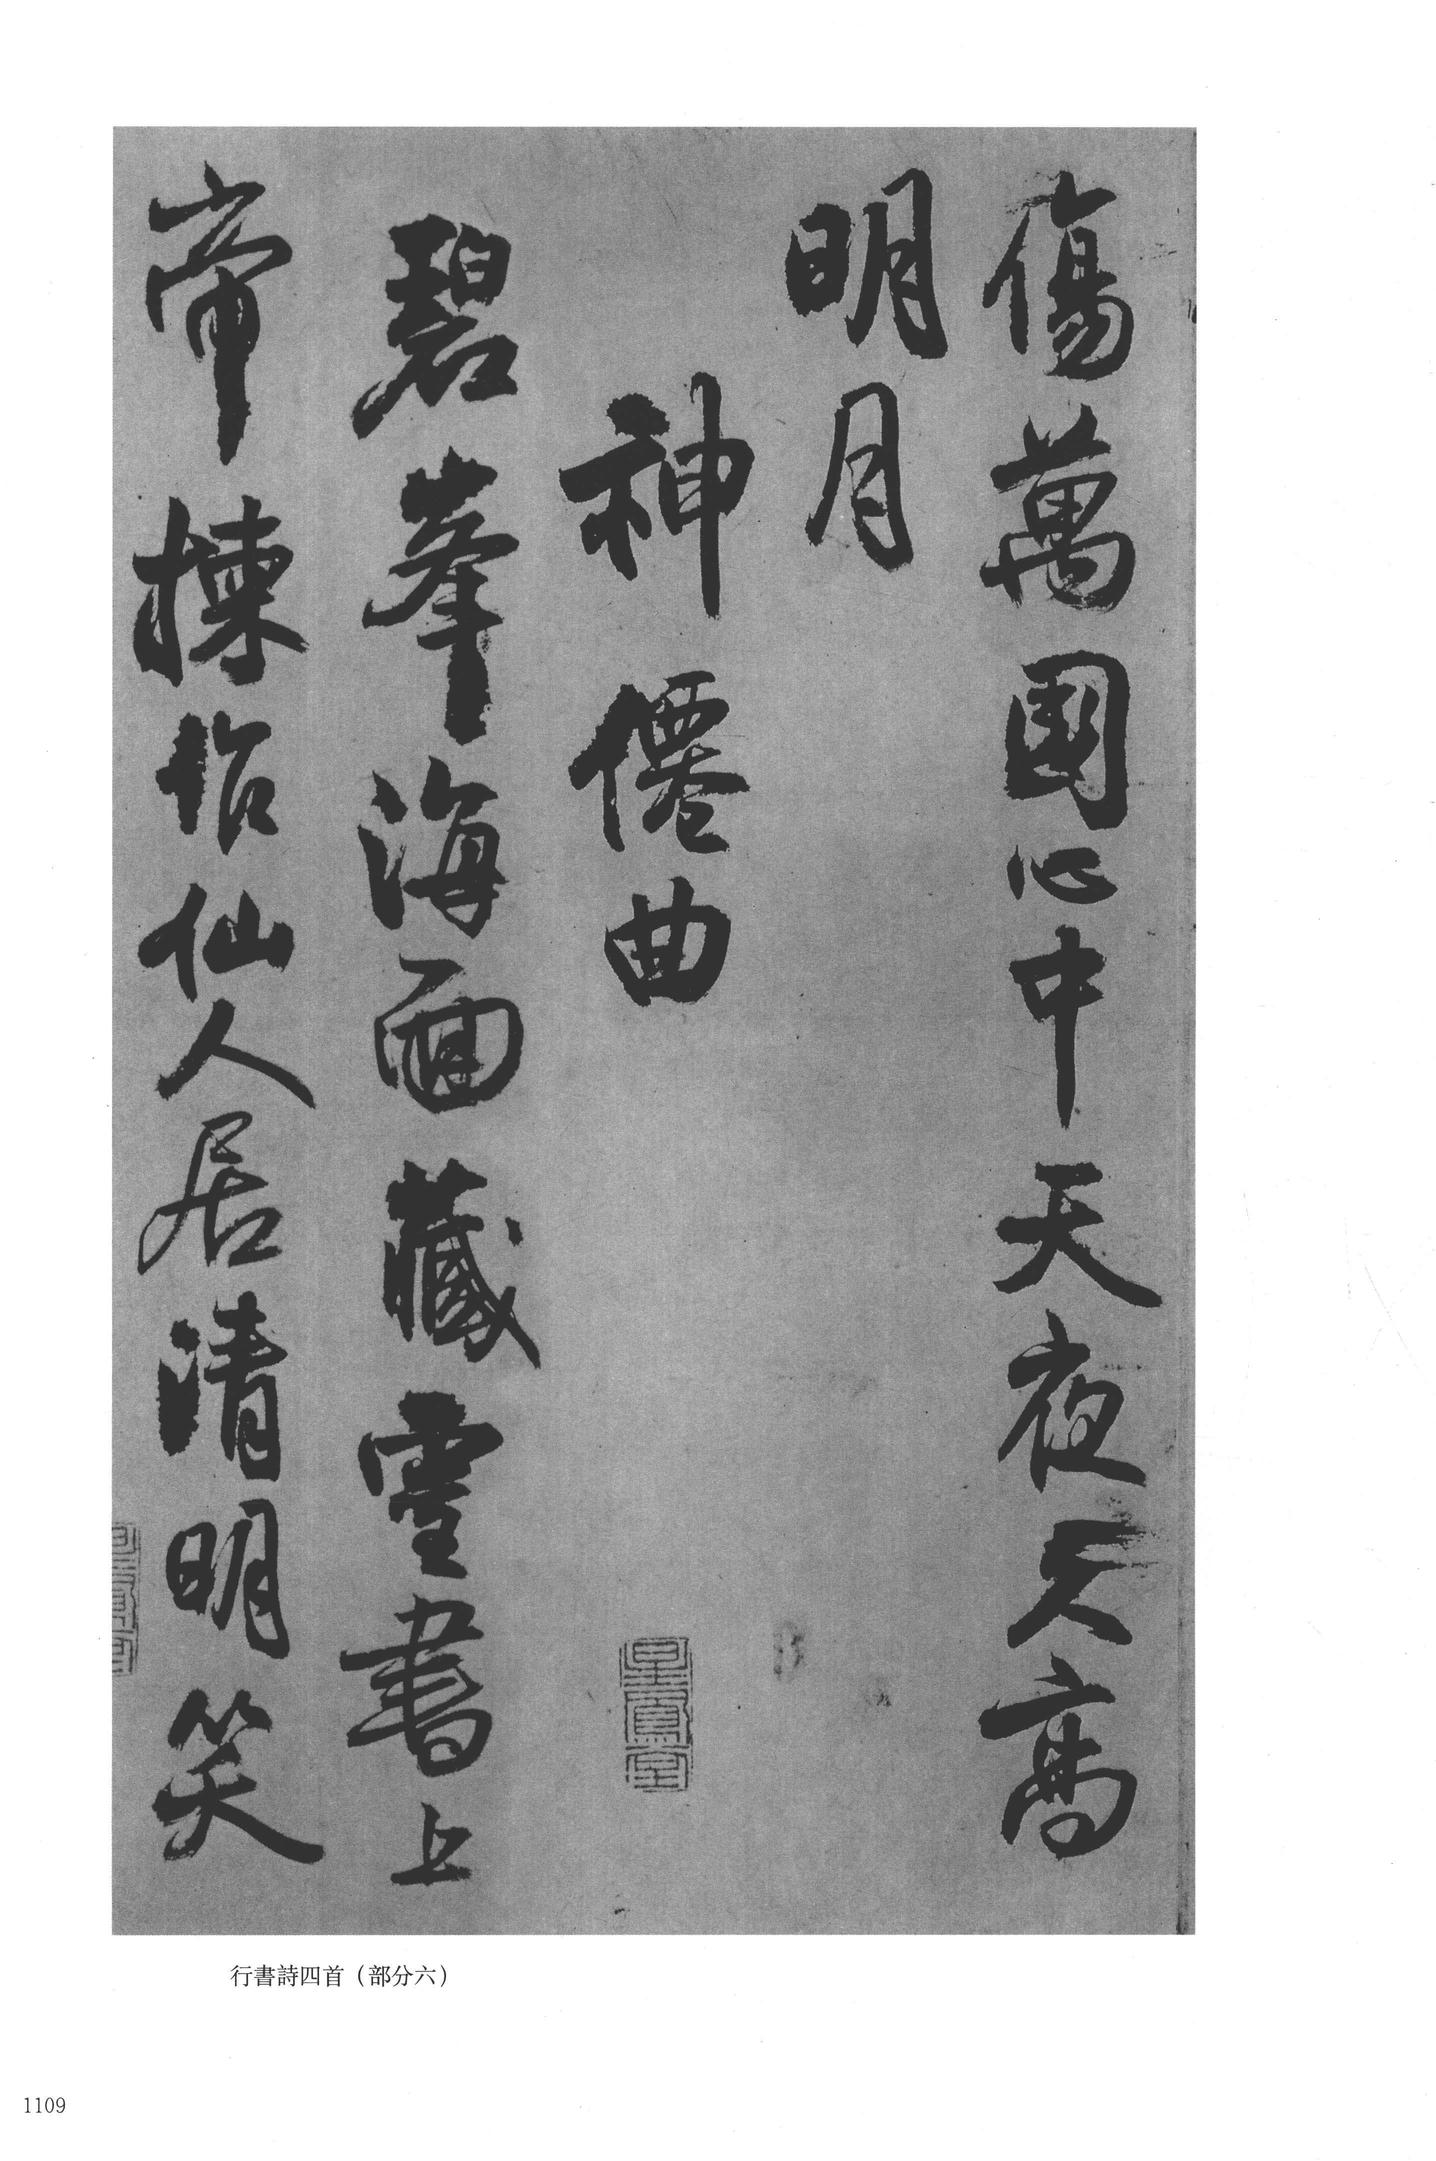 傷萬國心中天夜久高
明月
神僊曲
碧峯海面藏靈書上
帝揀作仙人居清明笑
行書詩四首（部分六）
1109